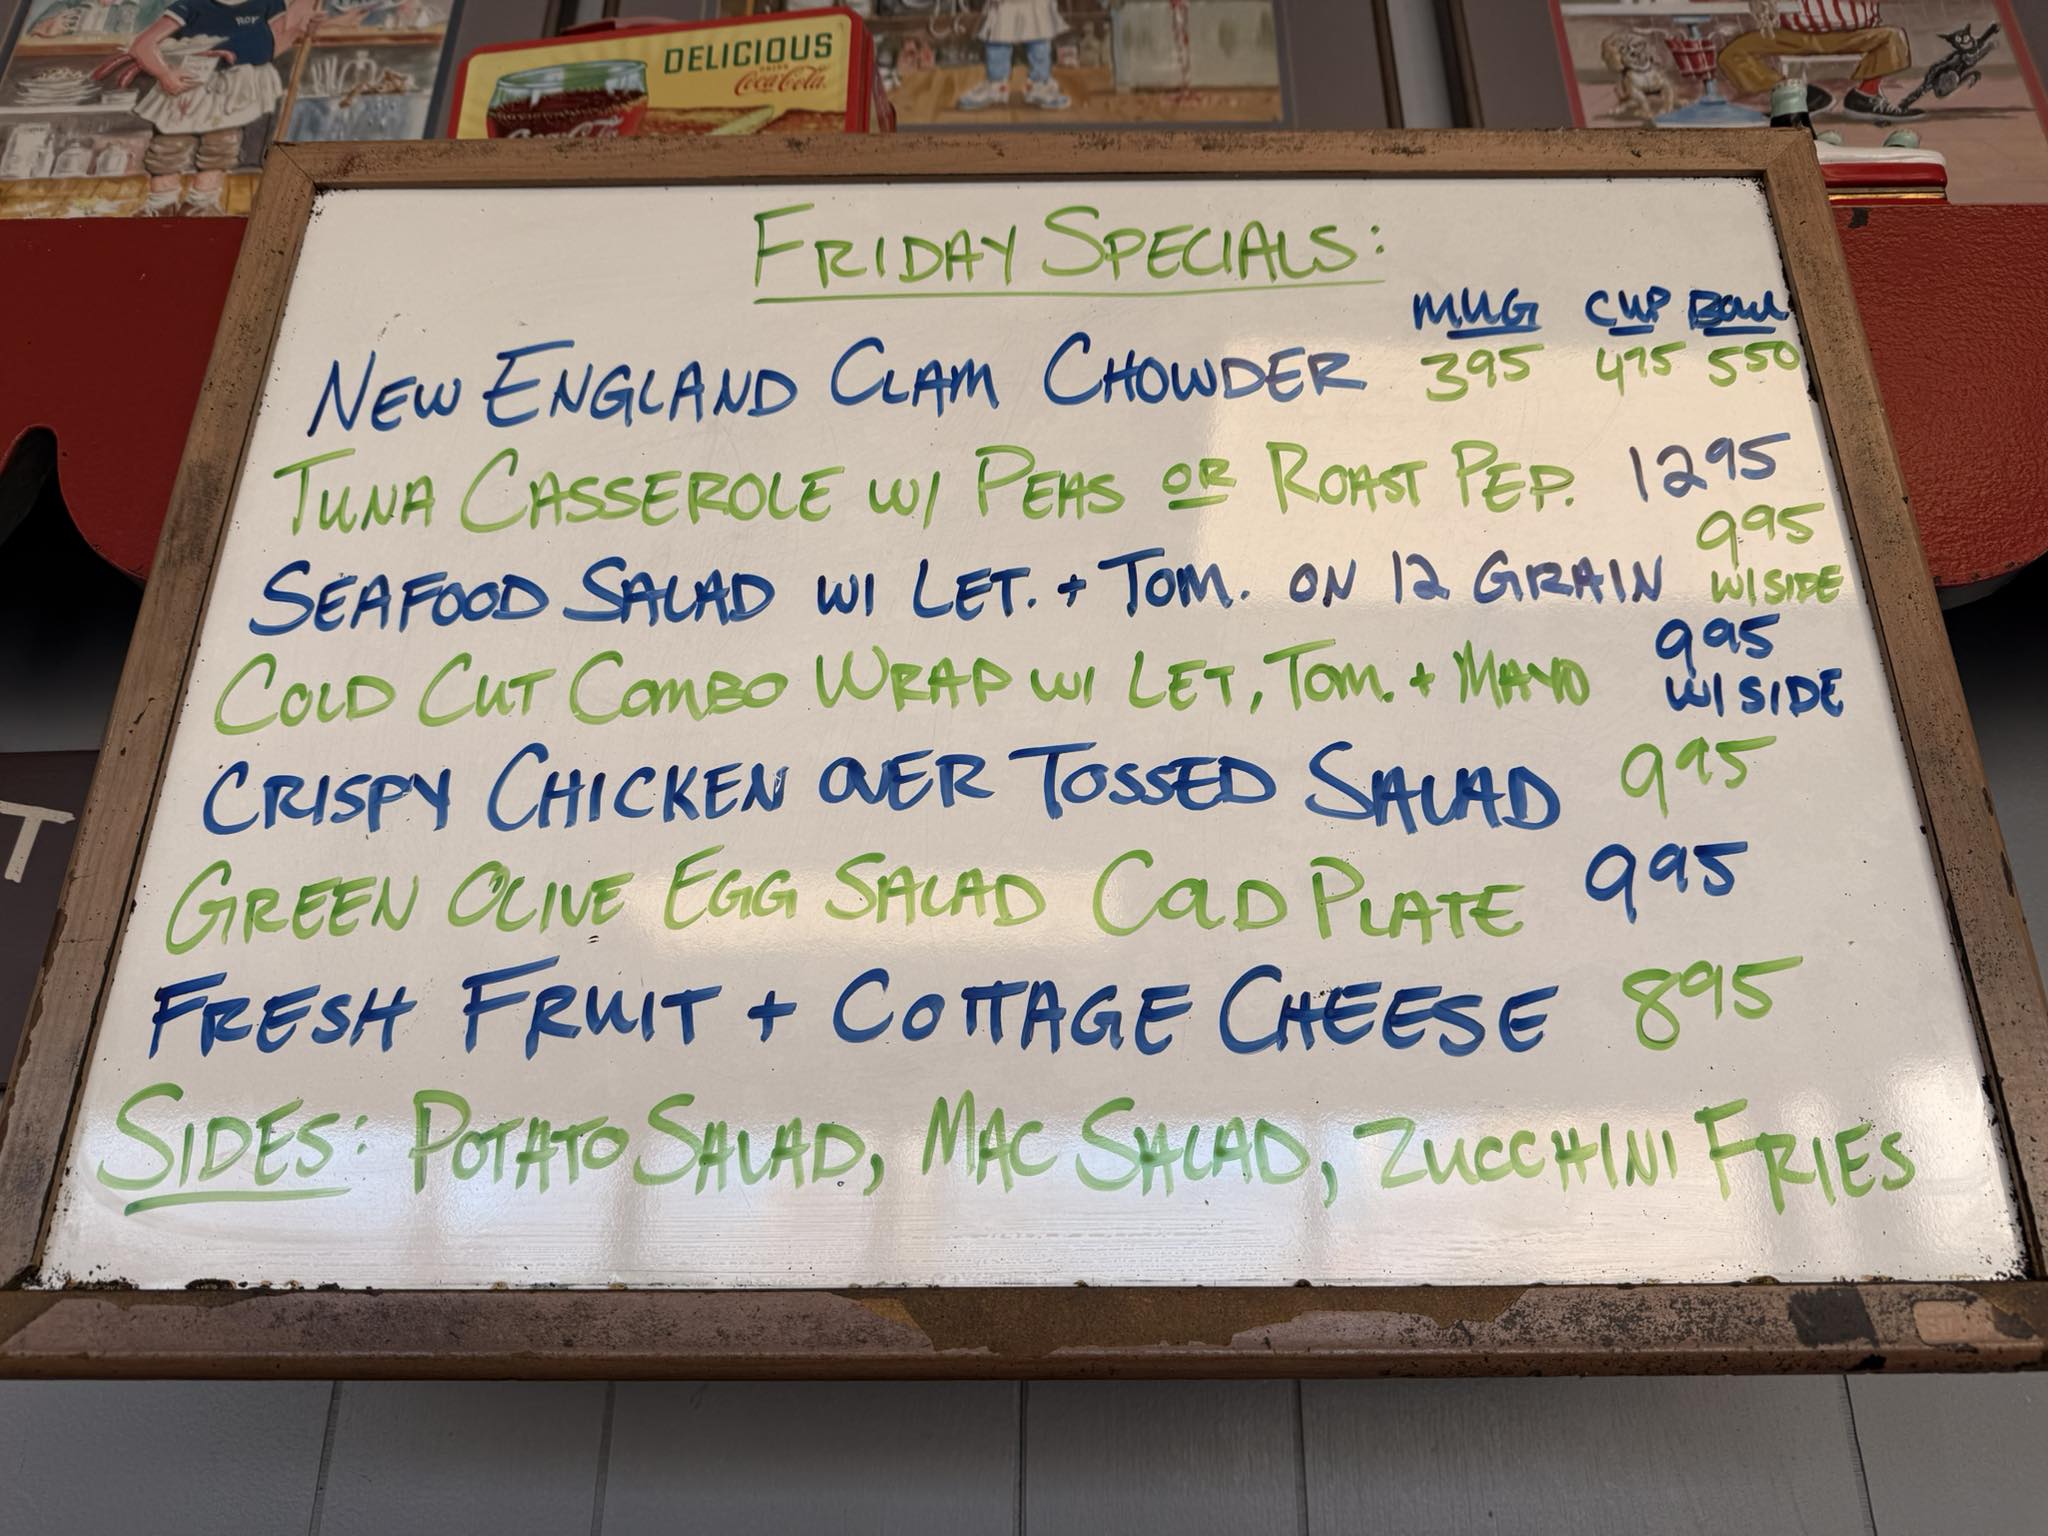 ROY
DELICIOUS
Coca-Cola
Coca-Cola
FRIDAY SPECIALS:
MUG CUP BOWL
NEW ENGLAND CLAM CHOWDER 395 475 550
TUNA CASSEROLE W/ PEAS OR ROAST PEP. 1295
SEAFOOD SALAD W/ LET. + TOM. ON 12 GRAIN 995 W/SIDE
COLD CUT COMBO WRAP W/ LET, TOM. + MAYO 995 W/SIDE
CRISPY CHICKEN OVER TOSSED SALAD 995
GREEN OLIVE EGG SALAD COLD PLATE 995
FRESH FRUIT + COTTAGE CHEESE 895
SIDES: POTATO SALAD, MAC SALAD, ZUCCHINI FRIES
T